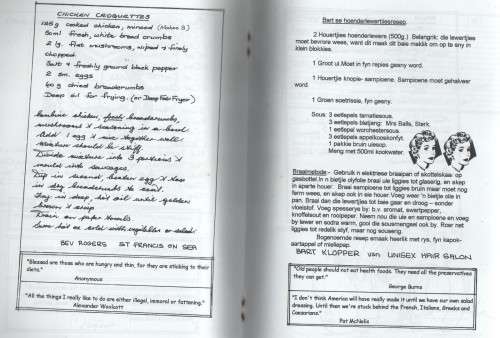 CHICKEN CROQUETTES
125g cooked chicken, minced (Makes 3)
50ml fresh, white bread crumbs
2 lg. flat mushrooms, wiped & finely
chopped.
Salt & freshly ground black pepper
2 sm. eggs
60 g dried breadcrumbs
Deep oil for frying. (or Deep Fat Fryer)
Combine chicken, fresh breadcrumbs,
mushrooms & seasoning in a bowl
Add 1 egg & mix together well
Mixture should be stiff
Divide mixture into 3 portions &
mould into sausages
Dip in second beaten egg & then
in dry breadcrumbs to coat.
deep, hot oil until golden
brown & crisp
Drain on paper towels
Serve hot or cold with vegetables or salad
BEV ROGERS ST FRANCIS ON SEA
"Blessed are those who are hungry and thin, for they are sticking to their
diets."
Anonymous
"All the things I really like to do are either illegal, immoral or fattening."
Alexander Woolcott
Bart se hoenderlewertjiesresep.
2 Houertjies hoenderlewers (500g.) Belangrik: die lewertjies
moet bevrore wees, want dit maak dit baie maklik om op te sny in
klein blokkies.
1 Groot ui. Moet in fyn repies gesny word.
1 Houertjie knopie- sampioene. Sampioene moet gehalveer
word.
1 Groen soetrissie, fyn gesny.
Sous: 3 eetlepels tamatiesous.
3 eetlepels blatjang: Mrs Balls, Sterk.
1 eetlepel worchestersous.
3 eetlepels appelkooskonfyt.
1 pakkie bruin uiesop.
Meng met 500ml kookwater.
Braaimetode - Gebruik n elektriese braaipan of skottelskaar op
gasbottel. In n bietjie olyfolie braai uie liggies tot glaserig, en skep
in aparte houer. Braai sampioene tot liggies bruin maar moet nog
ferm wees, en skep ook in sie houer. Voeg weer 'n bietjie olie in
pan. Braai dan die lewertjies tot baie gaar en droog – sonder
vloeistof. Voeg speserye by: b.v. aromat, swartpepper,
knoffelsout en rooipeper. Neem nou die uie en sampioene en voeg
by lewer en sodra warm, gooi die sousmengsel ook by. Roer net
liggies tot redelik styf, maar nog souserig.
Bogenoemde resep smaak heerlik met rys, fyn kapok-
aartappel of mieliepap.
BART KLOPPER van UNISEX HAIR SALON
"Old people should not eat health foods. They need all the preservatives
they can get."
George Burns
"I don't think America will have really made it until we have our own salad
dressing. Until then we're stuck behind the French, Italians, Greeks and
Caesarians."
Pat McNelis